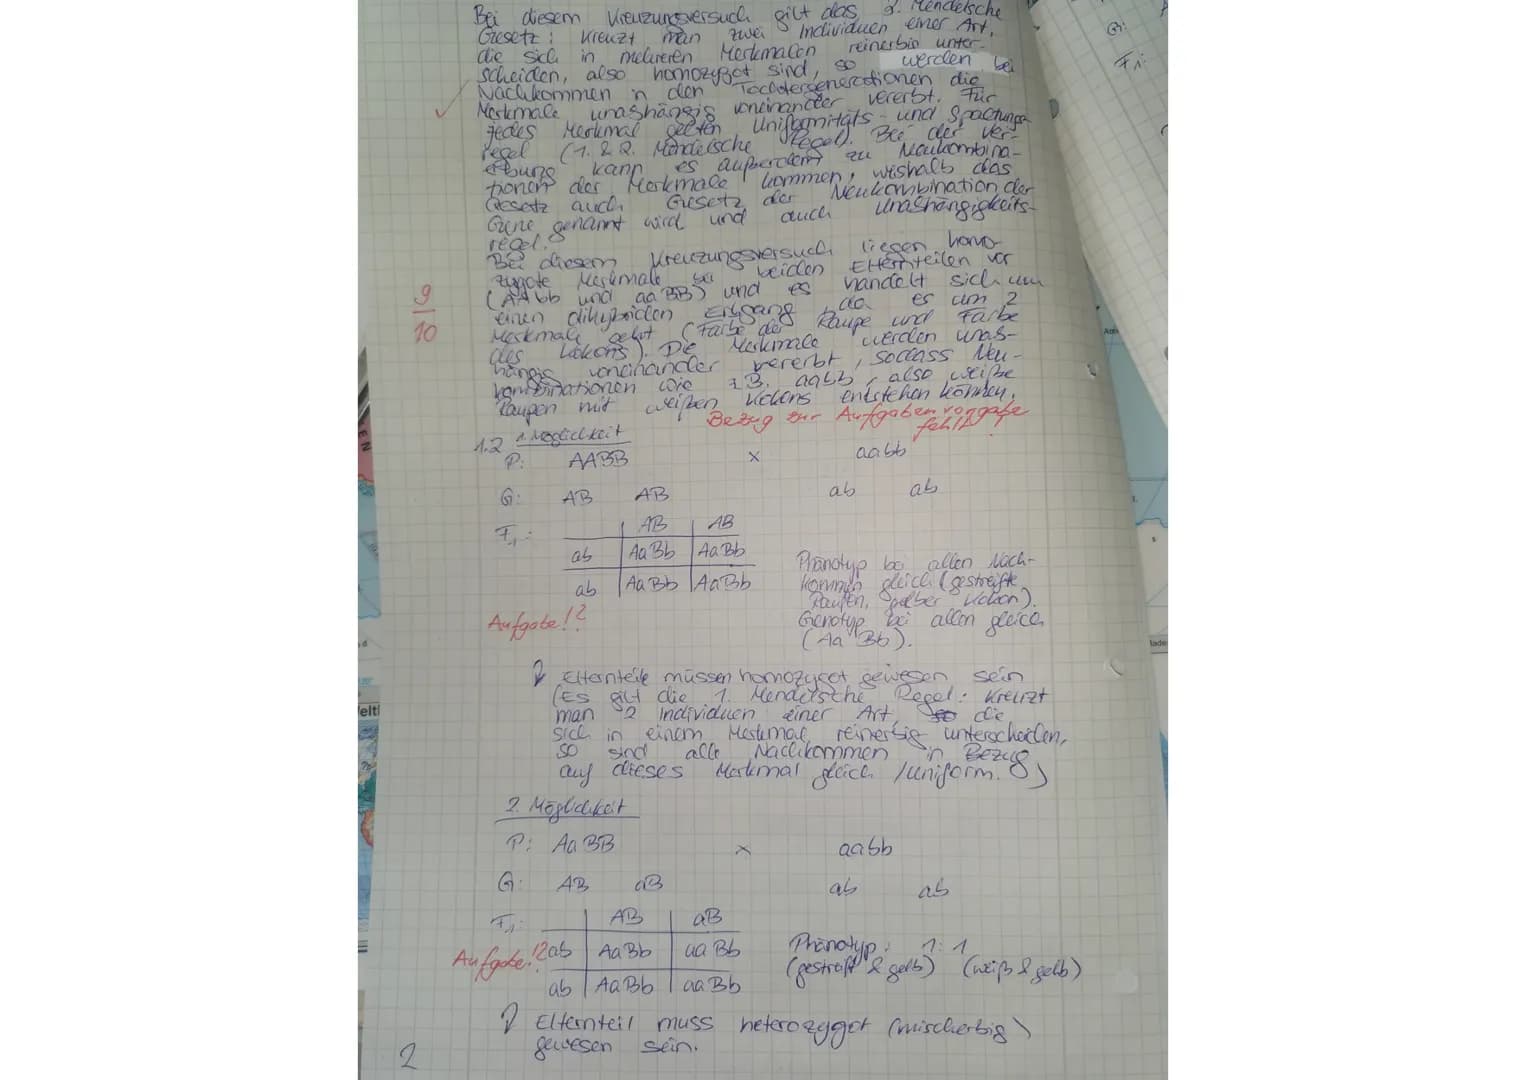 Bei diesem Kreuzungsversuch gilt das 3. Mendelsche
Gesetz: Kreuzt man zwei Individuen einer Art,
die sich in mehreren Merkmalen reinerbig unter-
scheiden, also homozygot sind, so werden bei
Nachkommen in den Tochtergenerationen die
Merkmale unabhängig voneinander vererbt. Für
jedes Merkmal gelten Uniformitäts- und Spaltungs-
regel (1. & 2. Mendelsche Regel). Bei der Ver-
erbung kann es außerdem zu Neukombina-
tionen der Merkmale kommen, weshalb das
Gesetz auch Gesetz der Neukombination der
Gene genannt wird und auch Unabhängigkeits-
regel.
Bei diesem Kreuzungsversuch liegen homo-
zygote Merkmale bei beiden Elternteilen vor
(AAbb und aaBB) und es handelt sich um
einen dihybriden Erbgang, da es um 2
Merkmale geht (Farbe der Raupe und Farbe
des Kokons). Die Merkmale werden unab-
hängig voneinander vererbt, sodass Neu-
kombinationen wie z.B. aabb, also weiße
Raupen mit weißen Kokons entstehen können.
9
10
Bezug zur Aufgabenvorgabe
fehlt
1.2 1. Möglichkeit
P: AABB x aabb
G: AB AB ab ab
F1: AB AB
ab AaBb AaBb
ab AaBb AaBb
Phänotyp bei allen Nach-
kommen gleich (gestreifte
Raupen, gelber Kokon).
Genotyp bei allen gleich
(AaBb).
Aufgabe!?
Elternteile müssen homozygot gewesen sein
(Es gilt die 1. Mendelsche Regel: Kreuzt
man 2 Individuen einer Art, die
sich in einem Merkmal reinerbig unterscheiden,
so sind alle Nachkommen in Bezug
auf dieses Merkmal gleich /uniform.)
2. Möglichkeit
P: AaBB x aabb
G: AB aB ab ab
F1: AB aB
Aufgabe!? ab AaBb aaBb
ab AaBb aaBb
Phänotyp: 1:1
(gestreift & gelb) (weiß & gelb)
Elternteil muss heterozygot (mischerbig)
gewesen sein.
2
G:
F1: